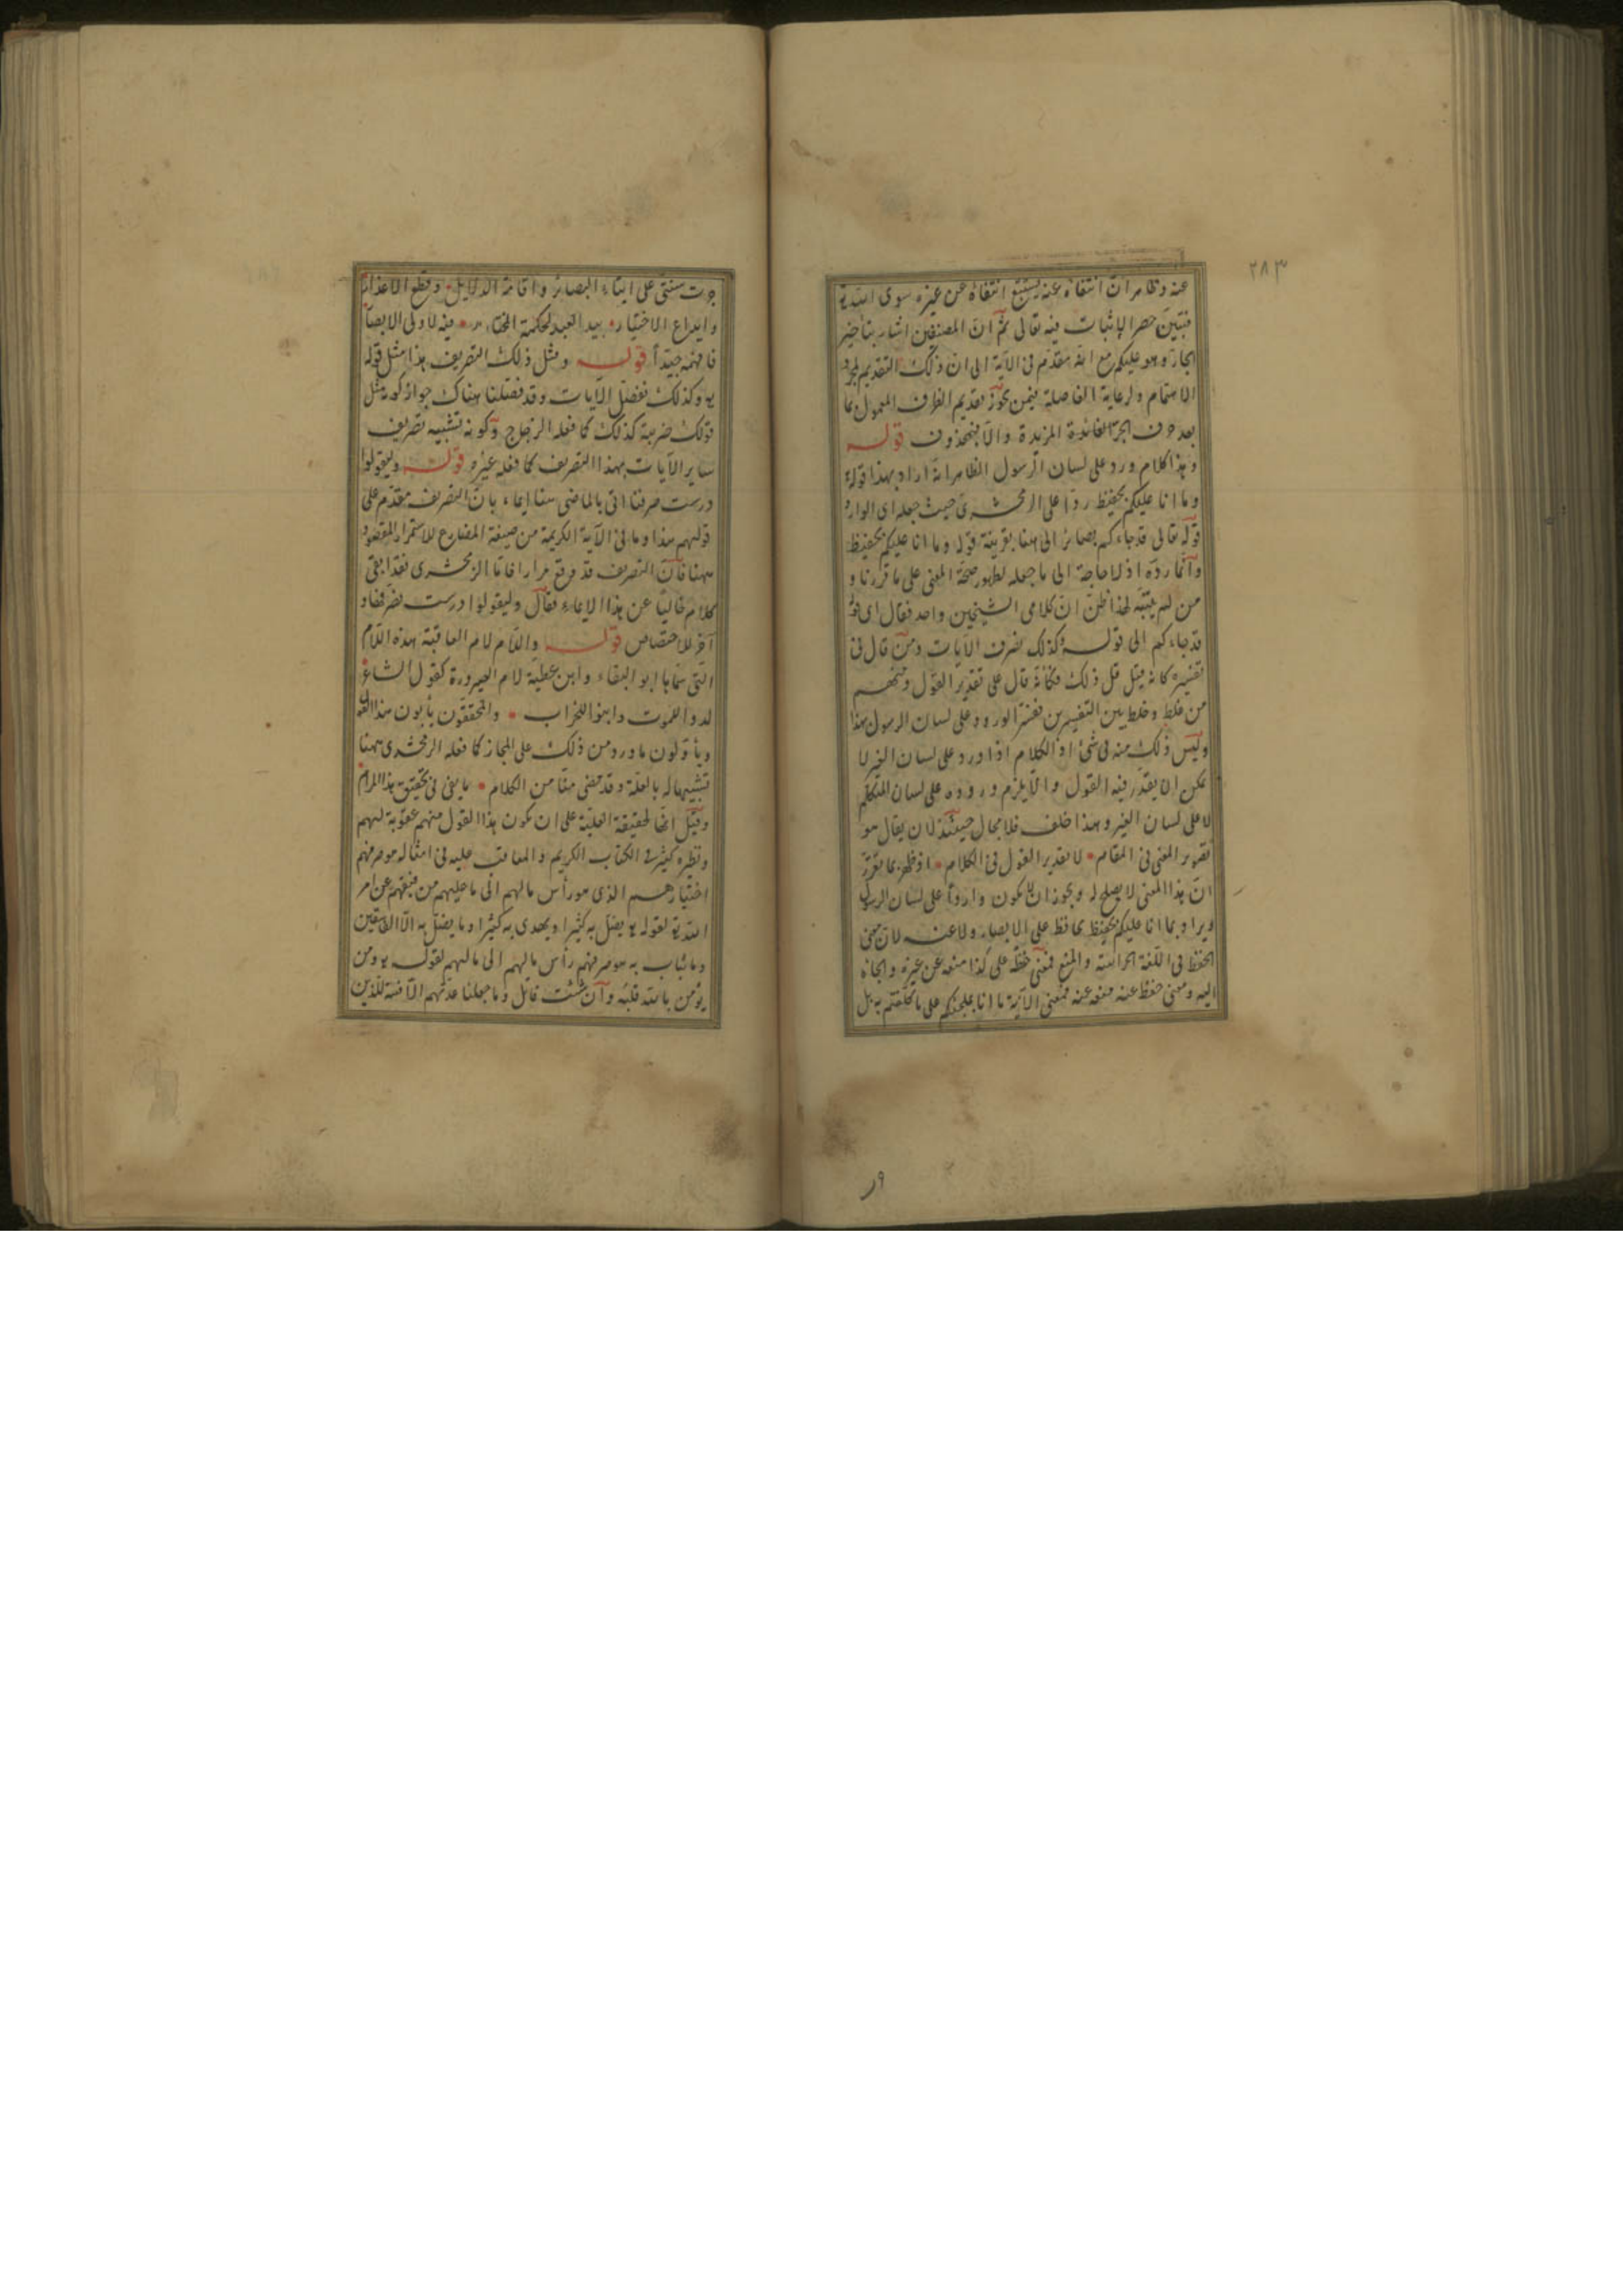 ٢٨٣
عنه وظاهر ان انتفاه عنه يستتبع انتفاه عن غيره سوى الله تع
فتبين حصر الاثبات فيه تعالى ثم ان المصنفين اشار بتاخير
الجار وهو عليكم مع انه مقدم فى الآية الى ان ذلك التقديم لمجرد
الاهتمام ولرعاية الفاصلة فيمن يجوز تقديم الظرف المعمول بما
بعد حرف الجر الفائدة المزيدة والا فبمحذوف قوله
وهذا كلام ورد على لسان الرسول الظاهر انه اراد بهذا قوله
وما انا عليكم بحفيظ ردا على الزمخشرى حيث جعله اى الوارد
قوله تعالى قد جاءكم بصائر الى هنا بقرينة قوله وما انا عليكم بحفيظ
وانما رده اذ لا حاجة الى ما جعله لظهور صحة المعنى على ما قررنا و
من لم يتنبه لهذا ظن ان كلامى الشيخين واحد فقال اى قوله
قد جاءكم الى قوله وكذلك نصرف الآيات ومن قال فى
تفسيره كانه قيل قل ذلك فكأنه قال على تقدير القول ومنهم
من غلط وخلط بين التفسيرين ففسر الورود على لسان الرسول بهذا
وليس ذلك منه فى شئ اذ الكلام اذا ورد على لسان الغير لا
يمكن ان يقدر فيه القول والا يلزم وروده على لسان المتكلم
لا على لسان الغير وهذا خلف فلا مجال حينئذ لان يقال هو
تصوير المعنى فى المقام لا تقدير القول فى الكلام اذ ظهر بما تقرر
ان هذا المعنى لا يصلح له ويجوز ان لا يكون واردا على لسان الرسول
ويراد بما انا عليكم بحفيظ بحافظ على الابصار ولا عنه لان معنى
الحفظ فى اللغة الحراسة والمنع فمعنى حفظه على كذا منعه عن غيره والجاه
اليه ومعنى حفظ عنه منعه عنه فمعنى الآية ما انا بملجئكم على ما كلفتم به بل
٩ر
جرت سنتى على ايتاء البصائر واقامة الدلايل وقطع الاعذار
وايداع الاختيار بيد العبد لحكمة المختار فيه لاولى الابصار
فافهمه جيدا قوله ومثل ذلك التصريف هذا مثل قوله
يو وكذلك نفصل الآيات وقد فصلنا هناك جواز كونه مثل
قولك ضربته كذلك كما فعله الزجاج وكونه تشبيه تصريف
ساير الآيات بهذا التصريف كما فعله غيره قوله وليقولوا
درست صرفنا اتى بالماضى هنا ايماء بان التصريف مقدم على
قولهم هذا وما فى الآية الكريمة من صيغة المضارع للاستمرار المقصود
ههنا فان التصريف قد وقع مرارا فاتا الزمخشرى فقد ابقى
كلامه خاليا عن هذا الايماء فقال وليقولوا درست نصرفها و
آخر للاختصاص قوله واللام لام العاقبة هذه اللام
التى سماها ابو البقاء وابن عطية لام الصيرورة كقول الشاعر
لدوا للموت وابنوا للخراب والمحققون يأبون هذا القول
ويأولون ما ورد من ذلك على المجاز كما فعله الزمخشرى ههنا
تشبيها له بالعلة وقد مضى منا من الكلام ما يفى فى تحقيق هذا المرام
وقيل انها لحقيقة العلية على ان يكون هذا القول منهم عقوبة لهم
ونظيره كثير فى الكتاب الكريم والمعاقب عليه فى امثاله هو صرفهم
اختيارهم الذى هو رأس مالهم الى ما عليهم من فسقهم عن امر
الله تع لقوله يو يضل به كثيرا ويهدى به كثيرا وما يضل به الا الفاسقين
وما يثاب به هو صرفهم رأس مالهم الى مالهم لقوله يو ومن
يؤمن بالله يهد قلبه وان شئت قاتل وما جعلنا عدتهم الا فتنة للذين